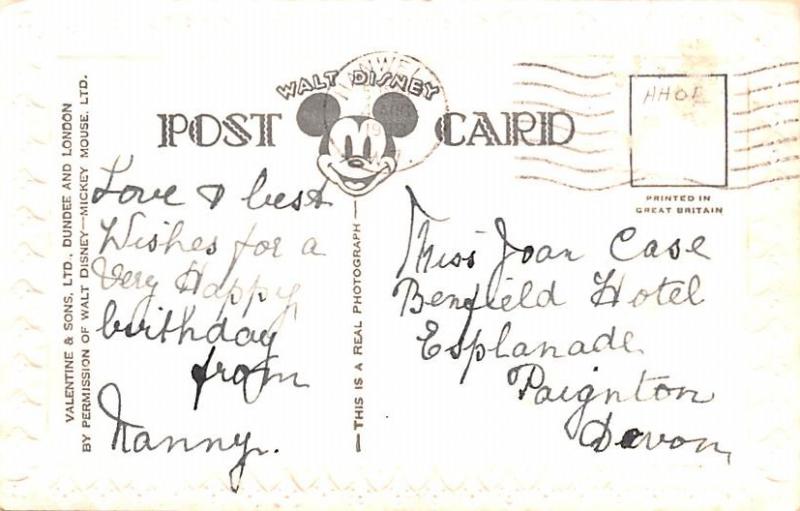 VALENTINE & SONS, LTD., DUNDEE AND LONDON
BY PERMISSION OF WALT DISNEY—MICKEY MOUSE, LTD.
WALT DISNEY
POST CARD
PRINTED IN
GREAT BRITAIN
Love & best
Wishes for a
Very Happy
birthday
from
Nanny.
—THIS IS A REAL PHOTOGRAPH—
Miss Joan Case
Benfield Hotel
Esplanade
Paignton
Devon,